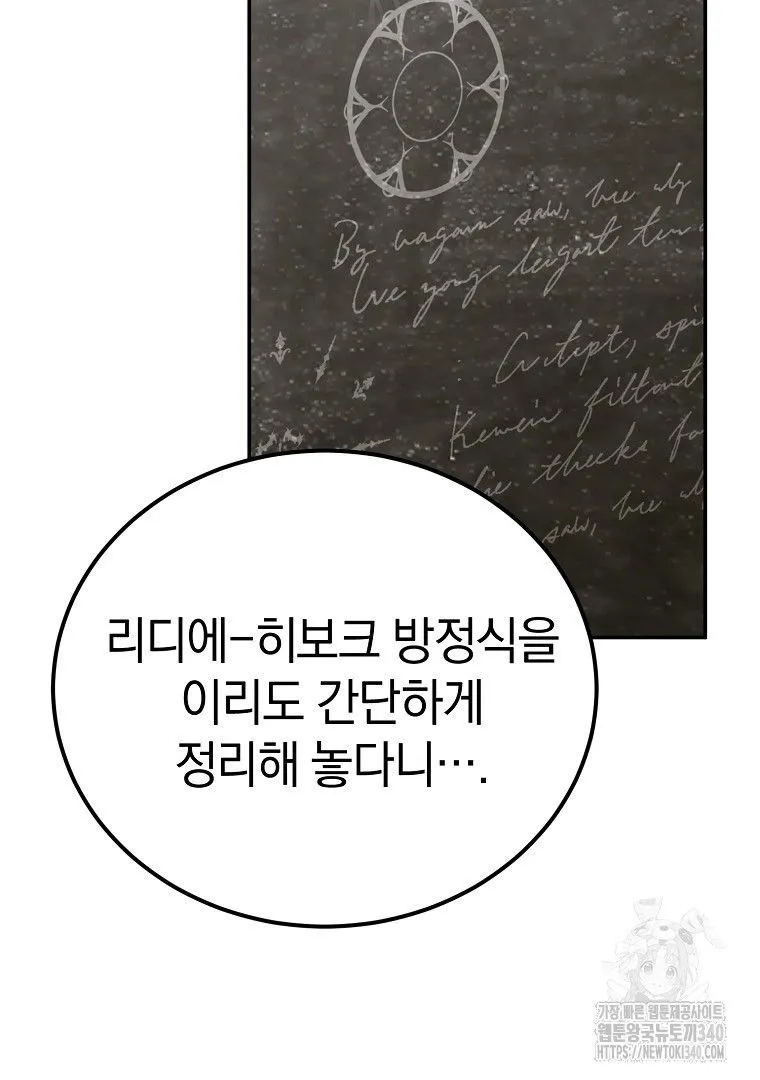 By hagam saw, bie
Cve yong leigart
filtont
saw, bie
리디에-히보크 방정식을
이리도 간단하게
정리해 놓다니….
가장 빠른 웹툰제공사이트
웹툰왕국뉴토끼340
HTTPS://NEWTOKI340.COM